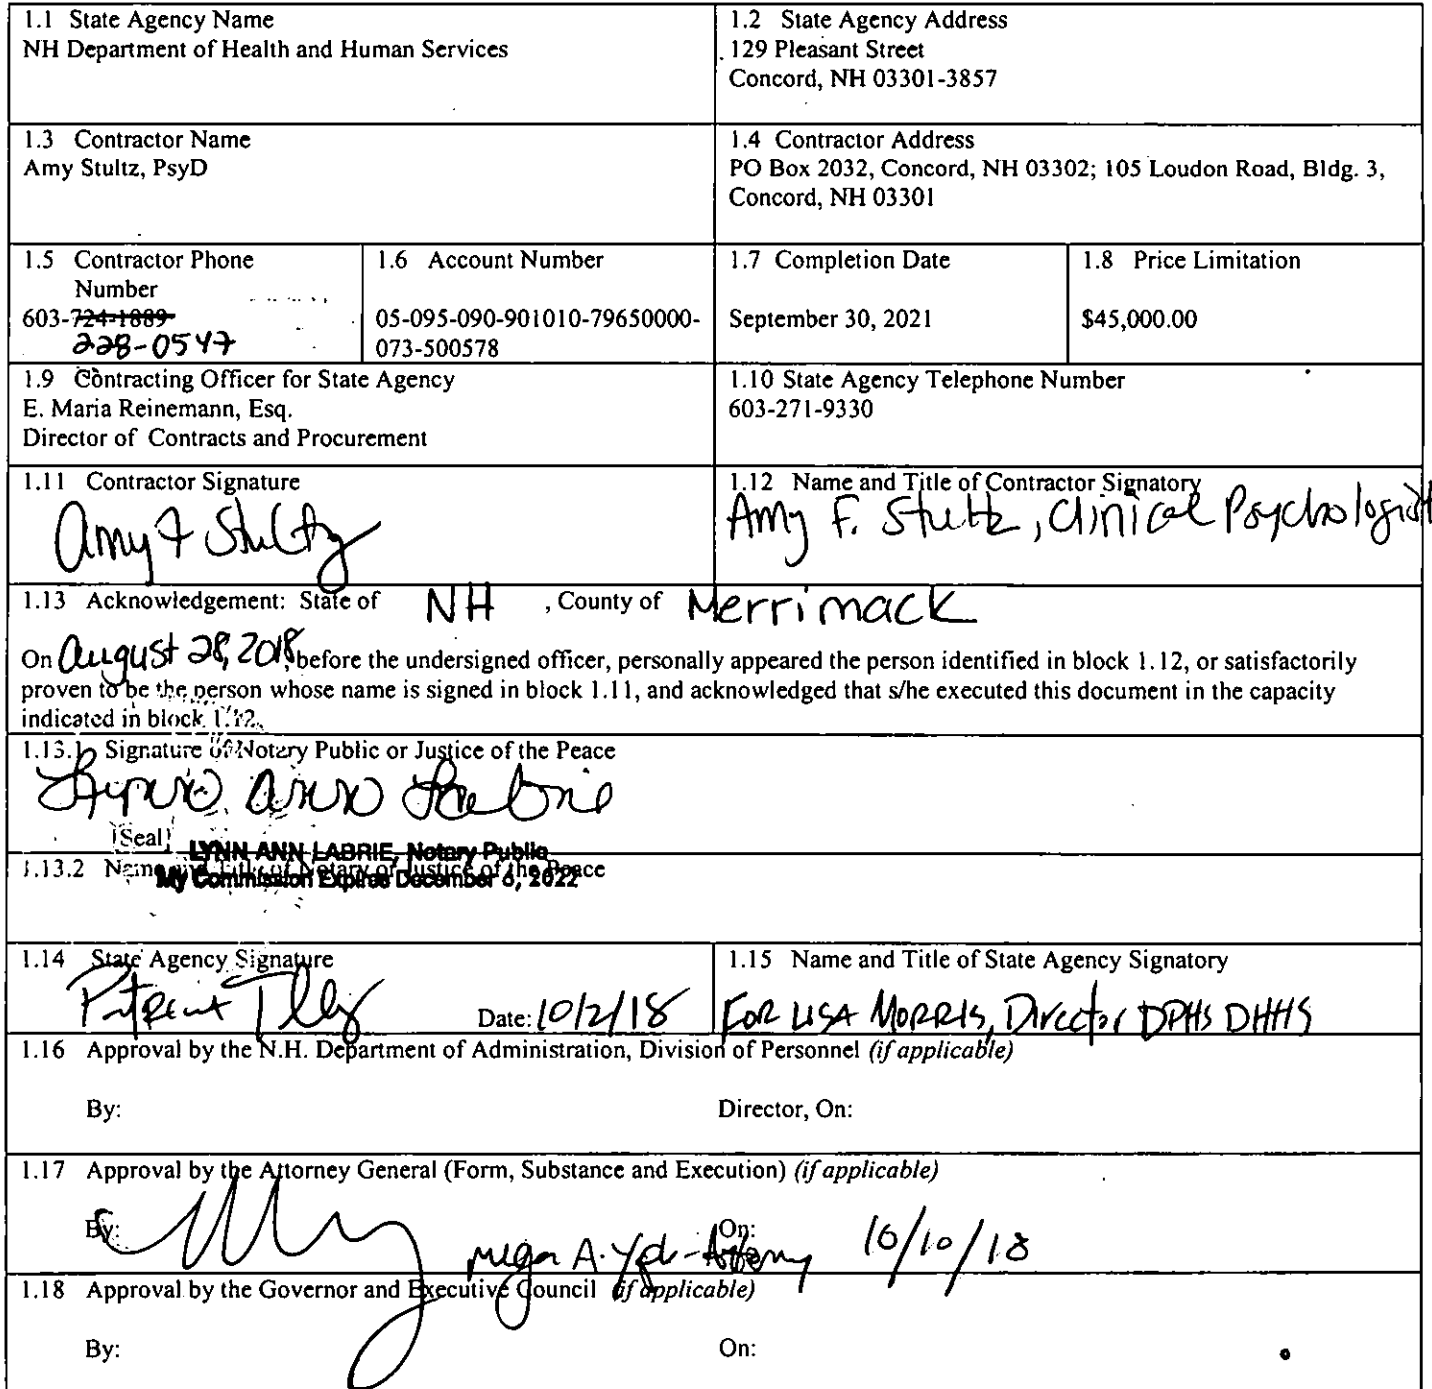 1.1 State Agency Name
NH Department of Health and Human Services
1.2 State Agency Address
129 Pleasant Street
Concord, NH 03301-3857
1.3 Contractor Name
Amy Stultz, PsyD
1.4 Contractor Address
PO Box 2032, Concord, NH 03302; 105 Loudon Road, Bldg. 3,
Concord, NH 03301
1.5 Contractor Phone
Number
603-724-1889
228-0547
1.6 Account Number
05-095-090-901010-79650000-
073-500578
1.7 Completion Date
September 30, 2021
1.8 Price Limitation
$45,000.00
1.9 Contracting Officer for State Agency
E. Maria Reinemann, Esq.
Director of Contracts and Procurement
1.10 State Agency Telephone Number
603-271-9330
1.11 Contractor Signature
Amy F Stultz
1.12 Name and Title of Contractor Signatory
Amy F. Stultz, Clinical Psychologist
1.13 Acknowledgement: State of NH , County of Merrimack
On August 28, 2018, before the undersigned officer, personally appeared the person identified in block 1.12, or satisfactorily
proven to be the person whose name is signed in block 1.11, and acknowledged that s/he executed this document in the capacity
indicated in block 1.12.
1.13.1 Signature of Notary Public or Justice of the Peace
Lynn Ann Labrie
[Seal]
LYNN ANN LABRIE, Notary Public
1.13.2 Name and Title of Notary or Justice of the Peace
My Commission Expires December 6, 2022
1.14 State Agency Signature
Date: 10/2/18
1.15 Name and Title of State Agency Signatory
FOR LISA MORRIS, Director DPHS DHHS
1.16 Approval by the N.H. Department of Administration, Division of Personnel (if applicable)
By:
Director, On:
1.17 Approval by the Attorney General (Form, Substance and Execution) (if applicable)
By:
On:
A. - Attorney 10/10/18
1.18 Approval by the Governor and Executive Council (if applicable)
By:
On: